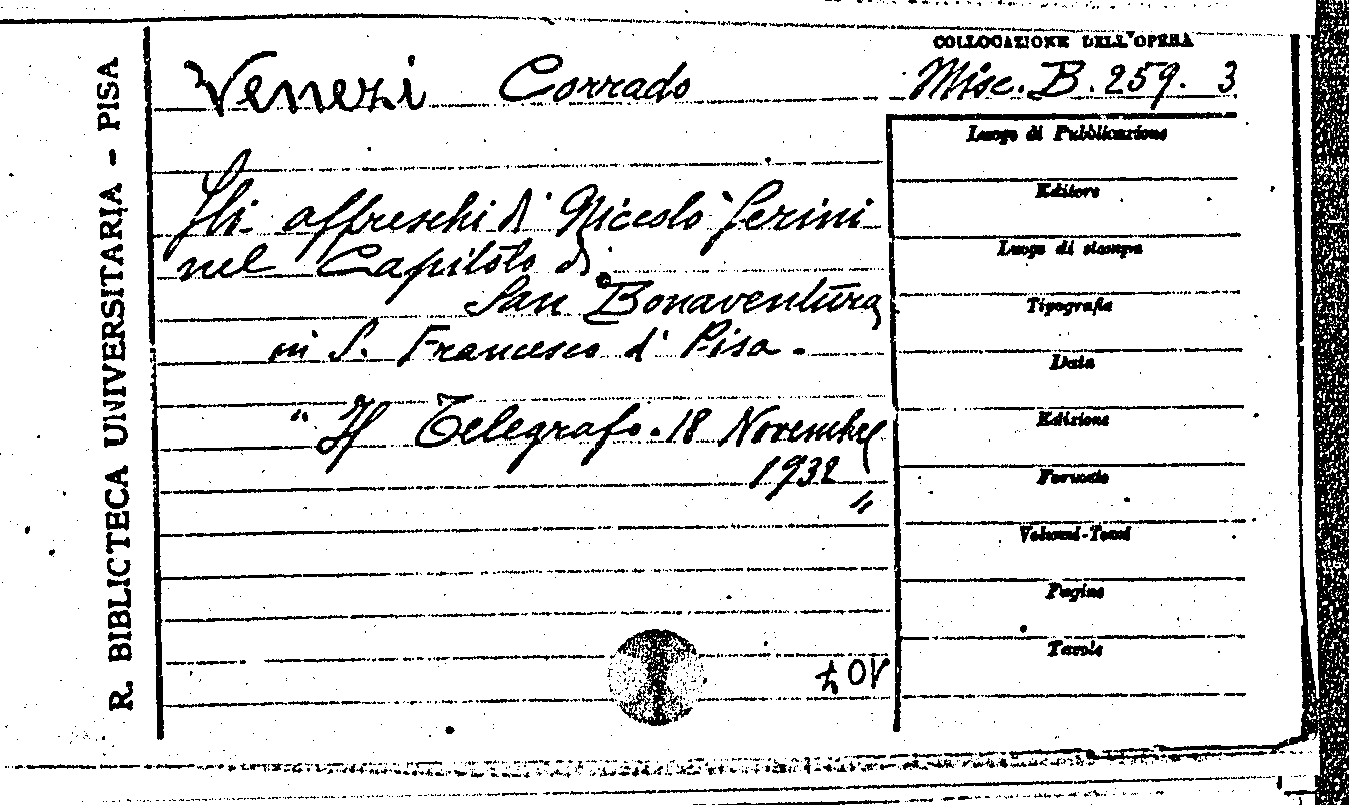 R. BIBLIOTECA UNIVERSITARIA - PISA
COLLOCAZIONE DELL'OPERA
Venezi Corrado
Misc. B. 259. 3
Gli affreschi di Niccolò Gerini
nel Capitolo di
San Bonaventura
in S. Francesco di Pisa.
" Il Telegrafo. 18 Novembre
1932 "
Luogo di Pubblicazione
Editore
Luogo di stampa
Tipografia
Data
Edizione
Formato
Volumi-Tomi
Pagine
Tavole